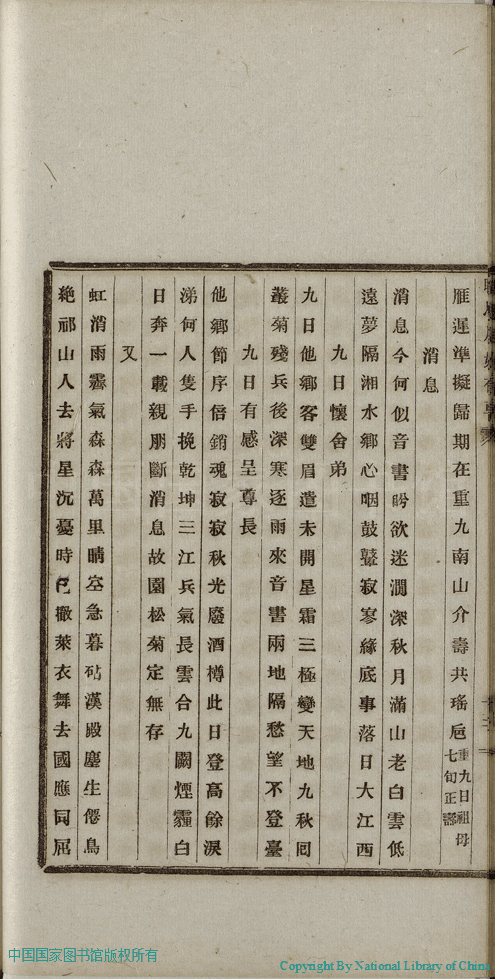 雁遲準擬歸期在重九南山介壽共瑤卮重九日祖母七旬正壽
消息
消息今何似音書盻欲迷澗深秋月滿山老白雲低
遠夢隔湘水鄉心咽鼓鼙寂寥緣底事落日大江西
九日懷舍弟
九日他鄉客雙眉遣未開星霜三極變天地九秋回
叢菊殘兵後深寒逐雨來音書兩地隔愁望不登臺
九日有感呈尊長
他鄉節序倍銷魂寂寂秋光廢酒樽此日登高餘淚
涕何人隻手挽乾坤三江兵氣長雲合九闕煙霾白
日奔一載親朋斷消息故園松菊定無存
又
虹消雨霽氣森森萬里晴空急暮砧漢殿塵生僊鳥
絕祁山人去將星沉憂時已撤萊衣舞去國應同屈
中国国家图书馆版权所有
Copyright By National Library of China